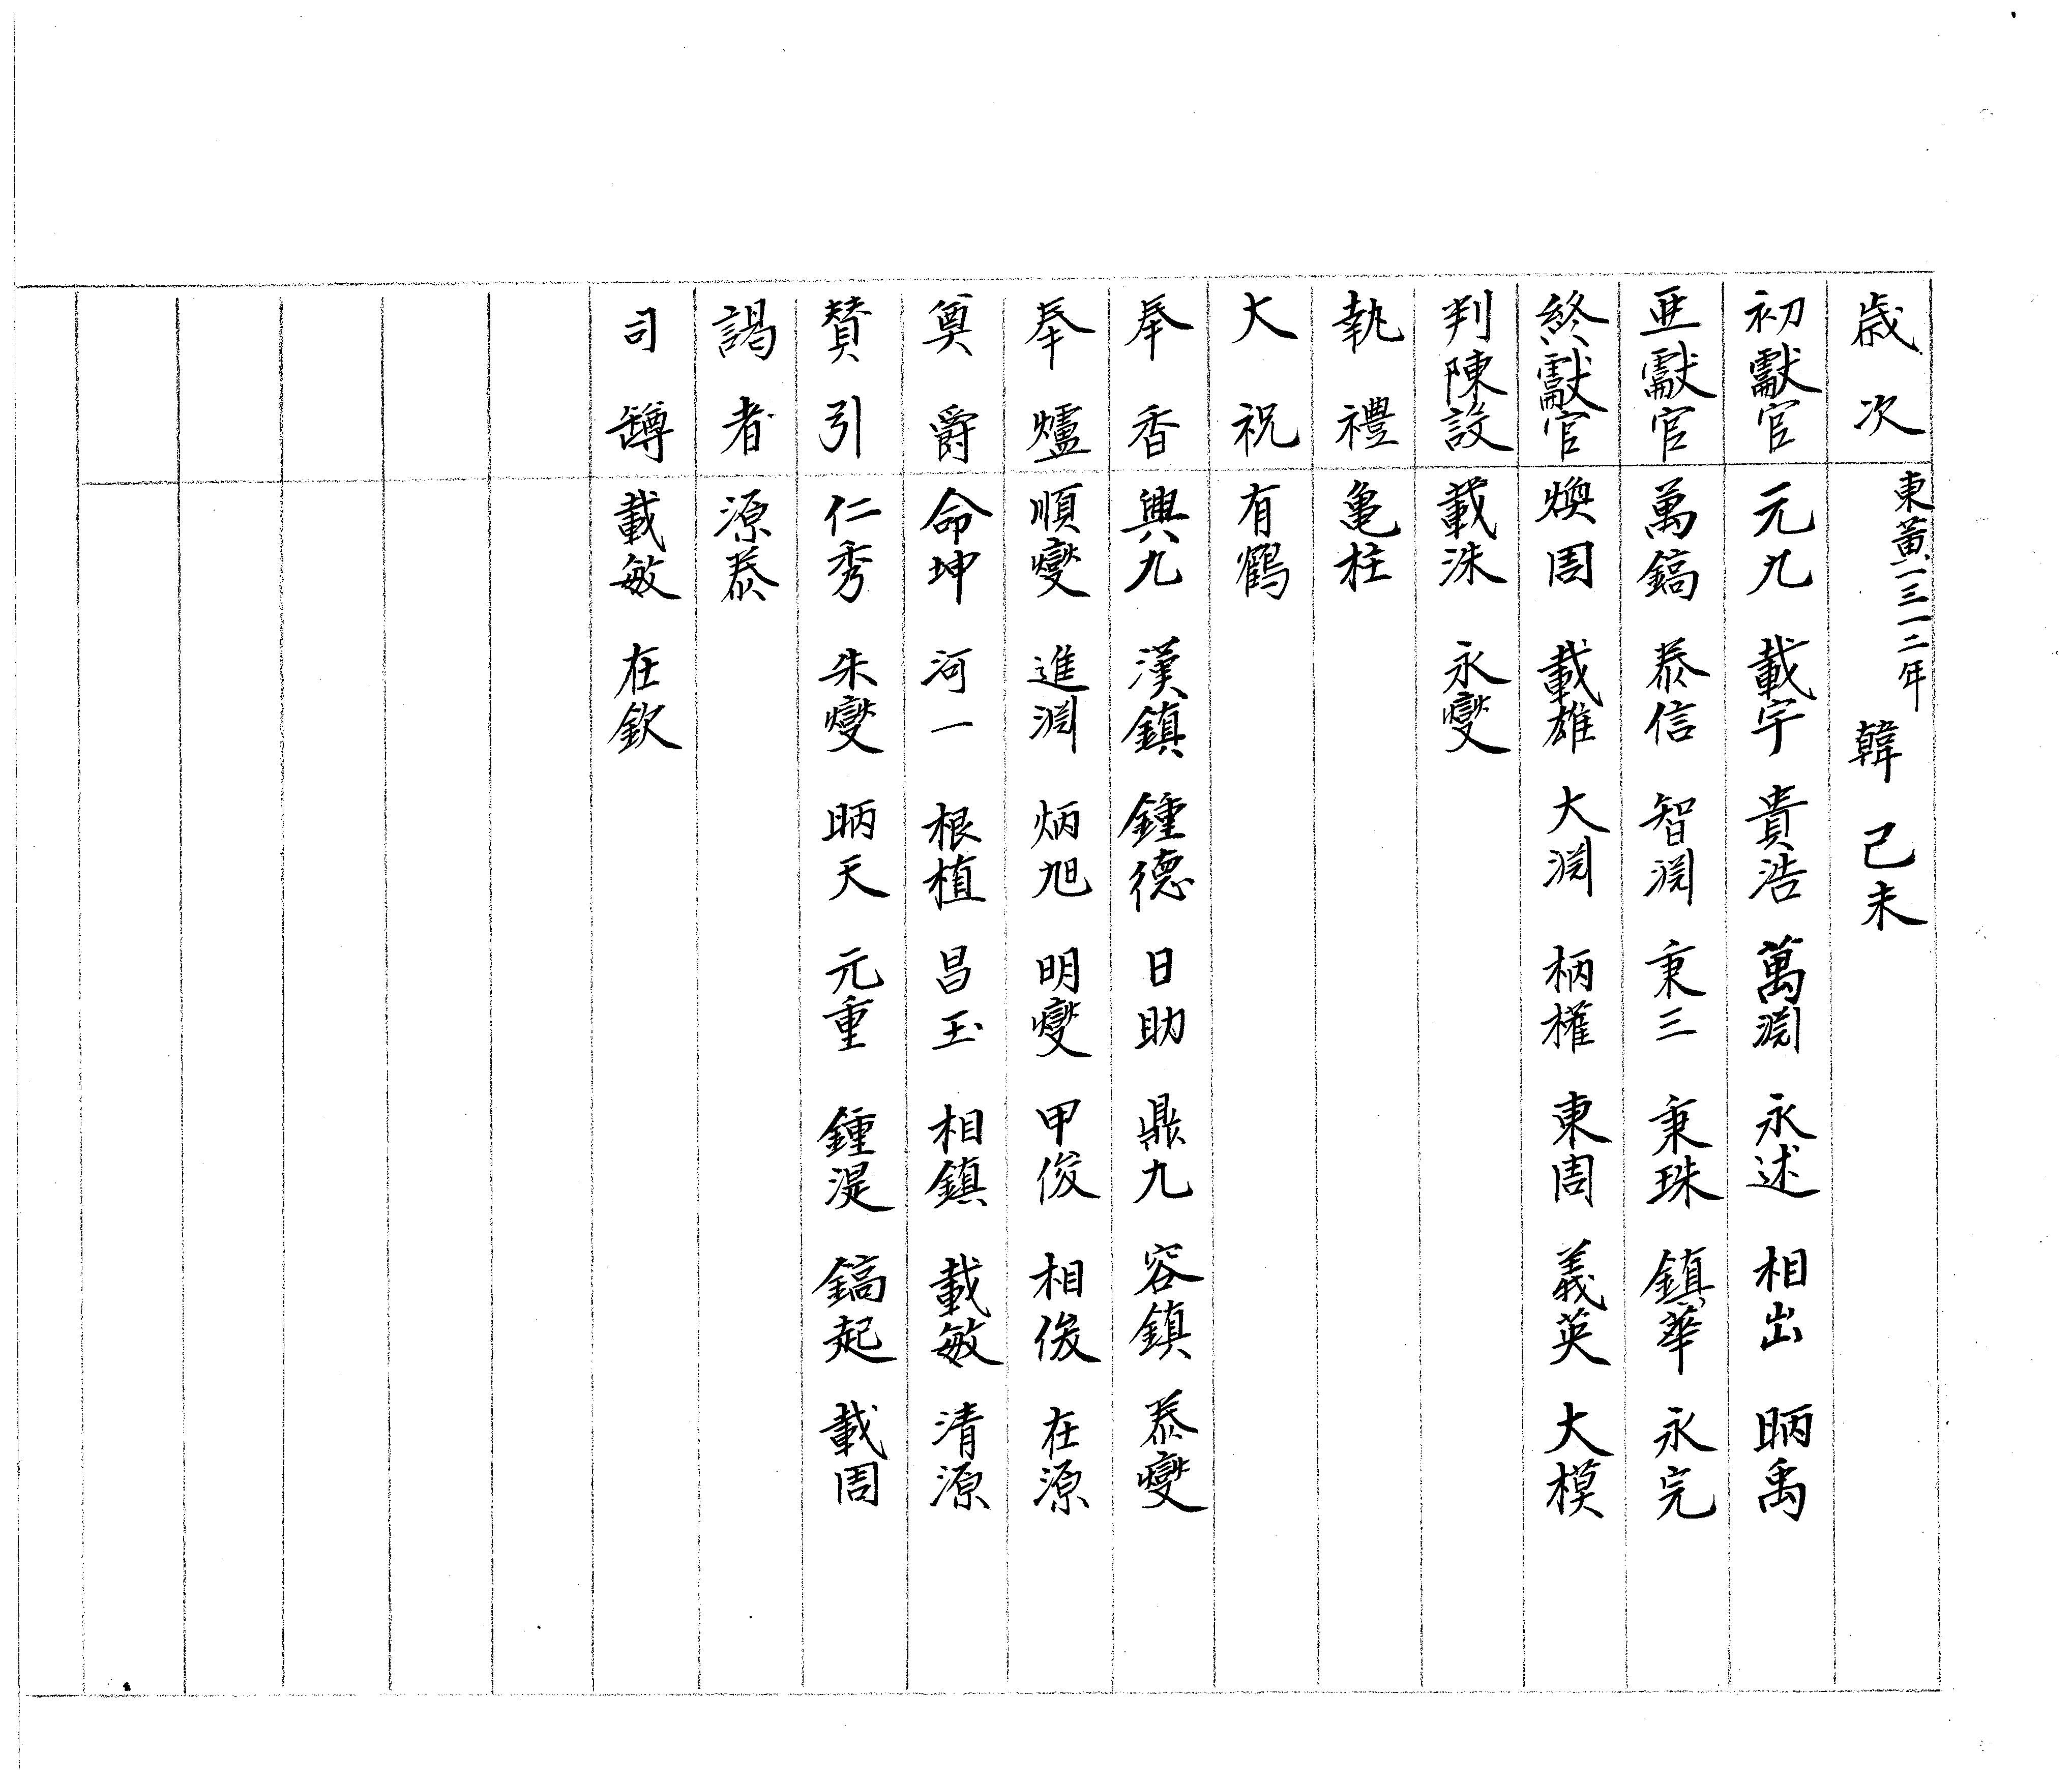 歲次 東黃一三一二年 韓 己未
初獻官 元九 載宇 貴浩 萬淵 永述 相出 昞禹
亜獻官 萬鎬 泰信 智淵 秉三 秉珠 鎮華 永完
終獻官 煥周 載雄 大淵 柄權 東周 義英 大模
判陳設 載洙 永燮
執禮 亀柱
大祝 有鶴
奉香 興九 漢鎮 鍾德 日助 鼎九 容鎮 泰燮
奉爐 順燮 進淵 炳旭 明燮 甲俊 相俊 在源
奠爵 命坤 河一 根植 昌玉 相鎮 載敏 清源
賛引 仁秀 朱燮 昞天 元重 鍾湜 鎬起 載周
謁者 源泰
司罇 載敏 在欽